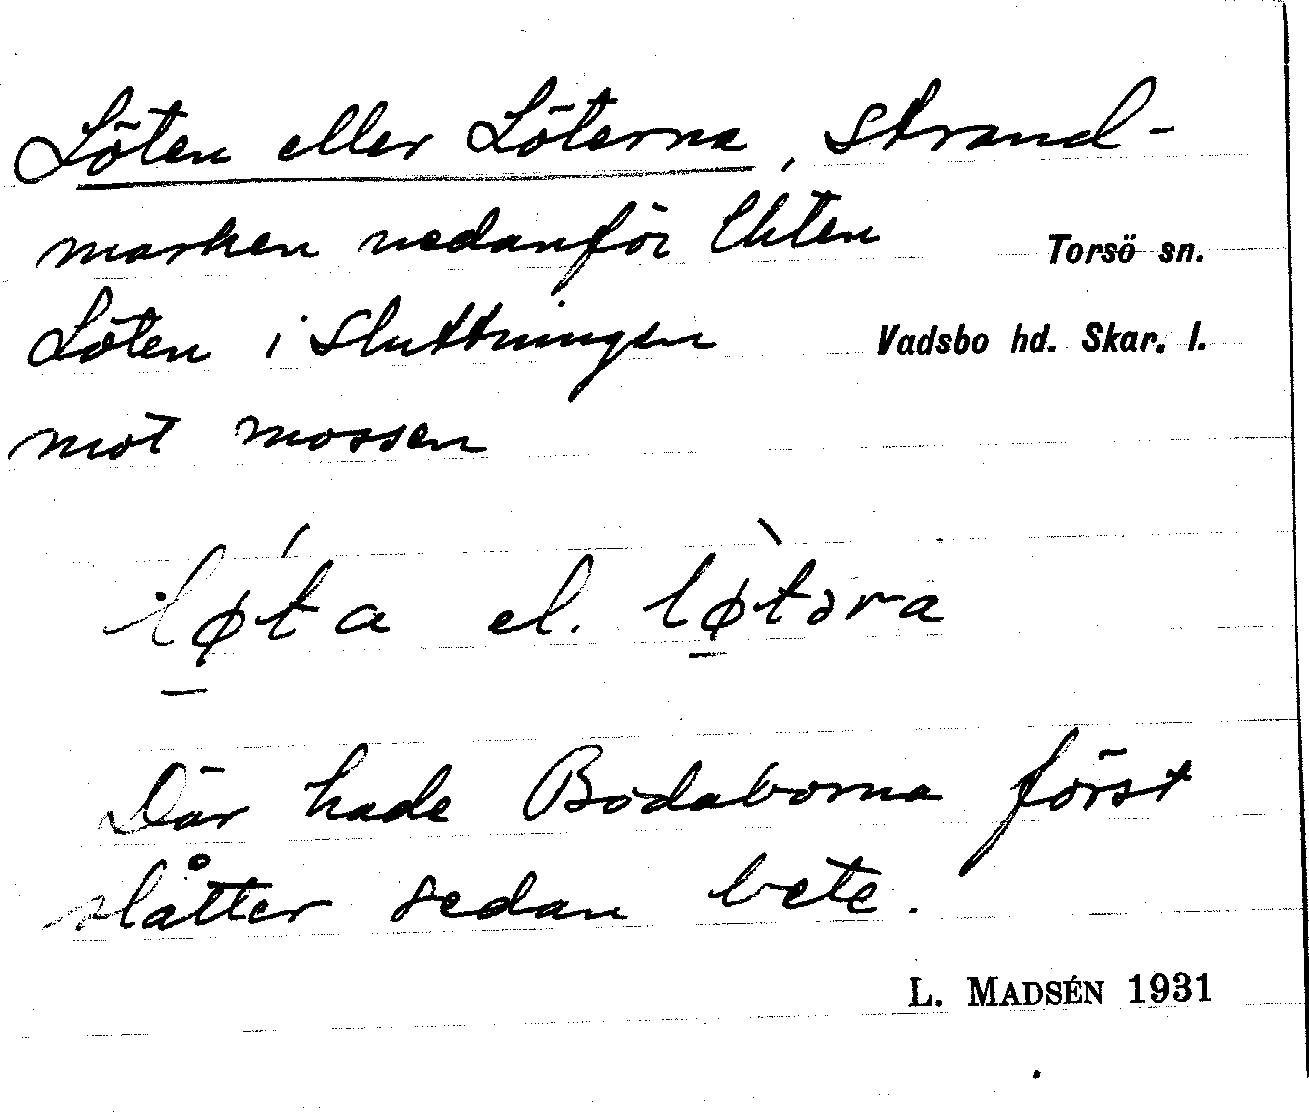 Löten eller Löterna, strand-
marken nedanför Ekten
Torsö sn.
Löten i sluttningen
Vadsbo hd. Skar. l.
mot mossen
lǿ̱ta el. lø̱̀tәra
Där hade Bodaborna först
slåtter sedan bete.
L. MADSÉN 1931